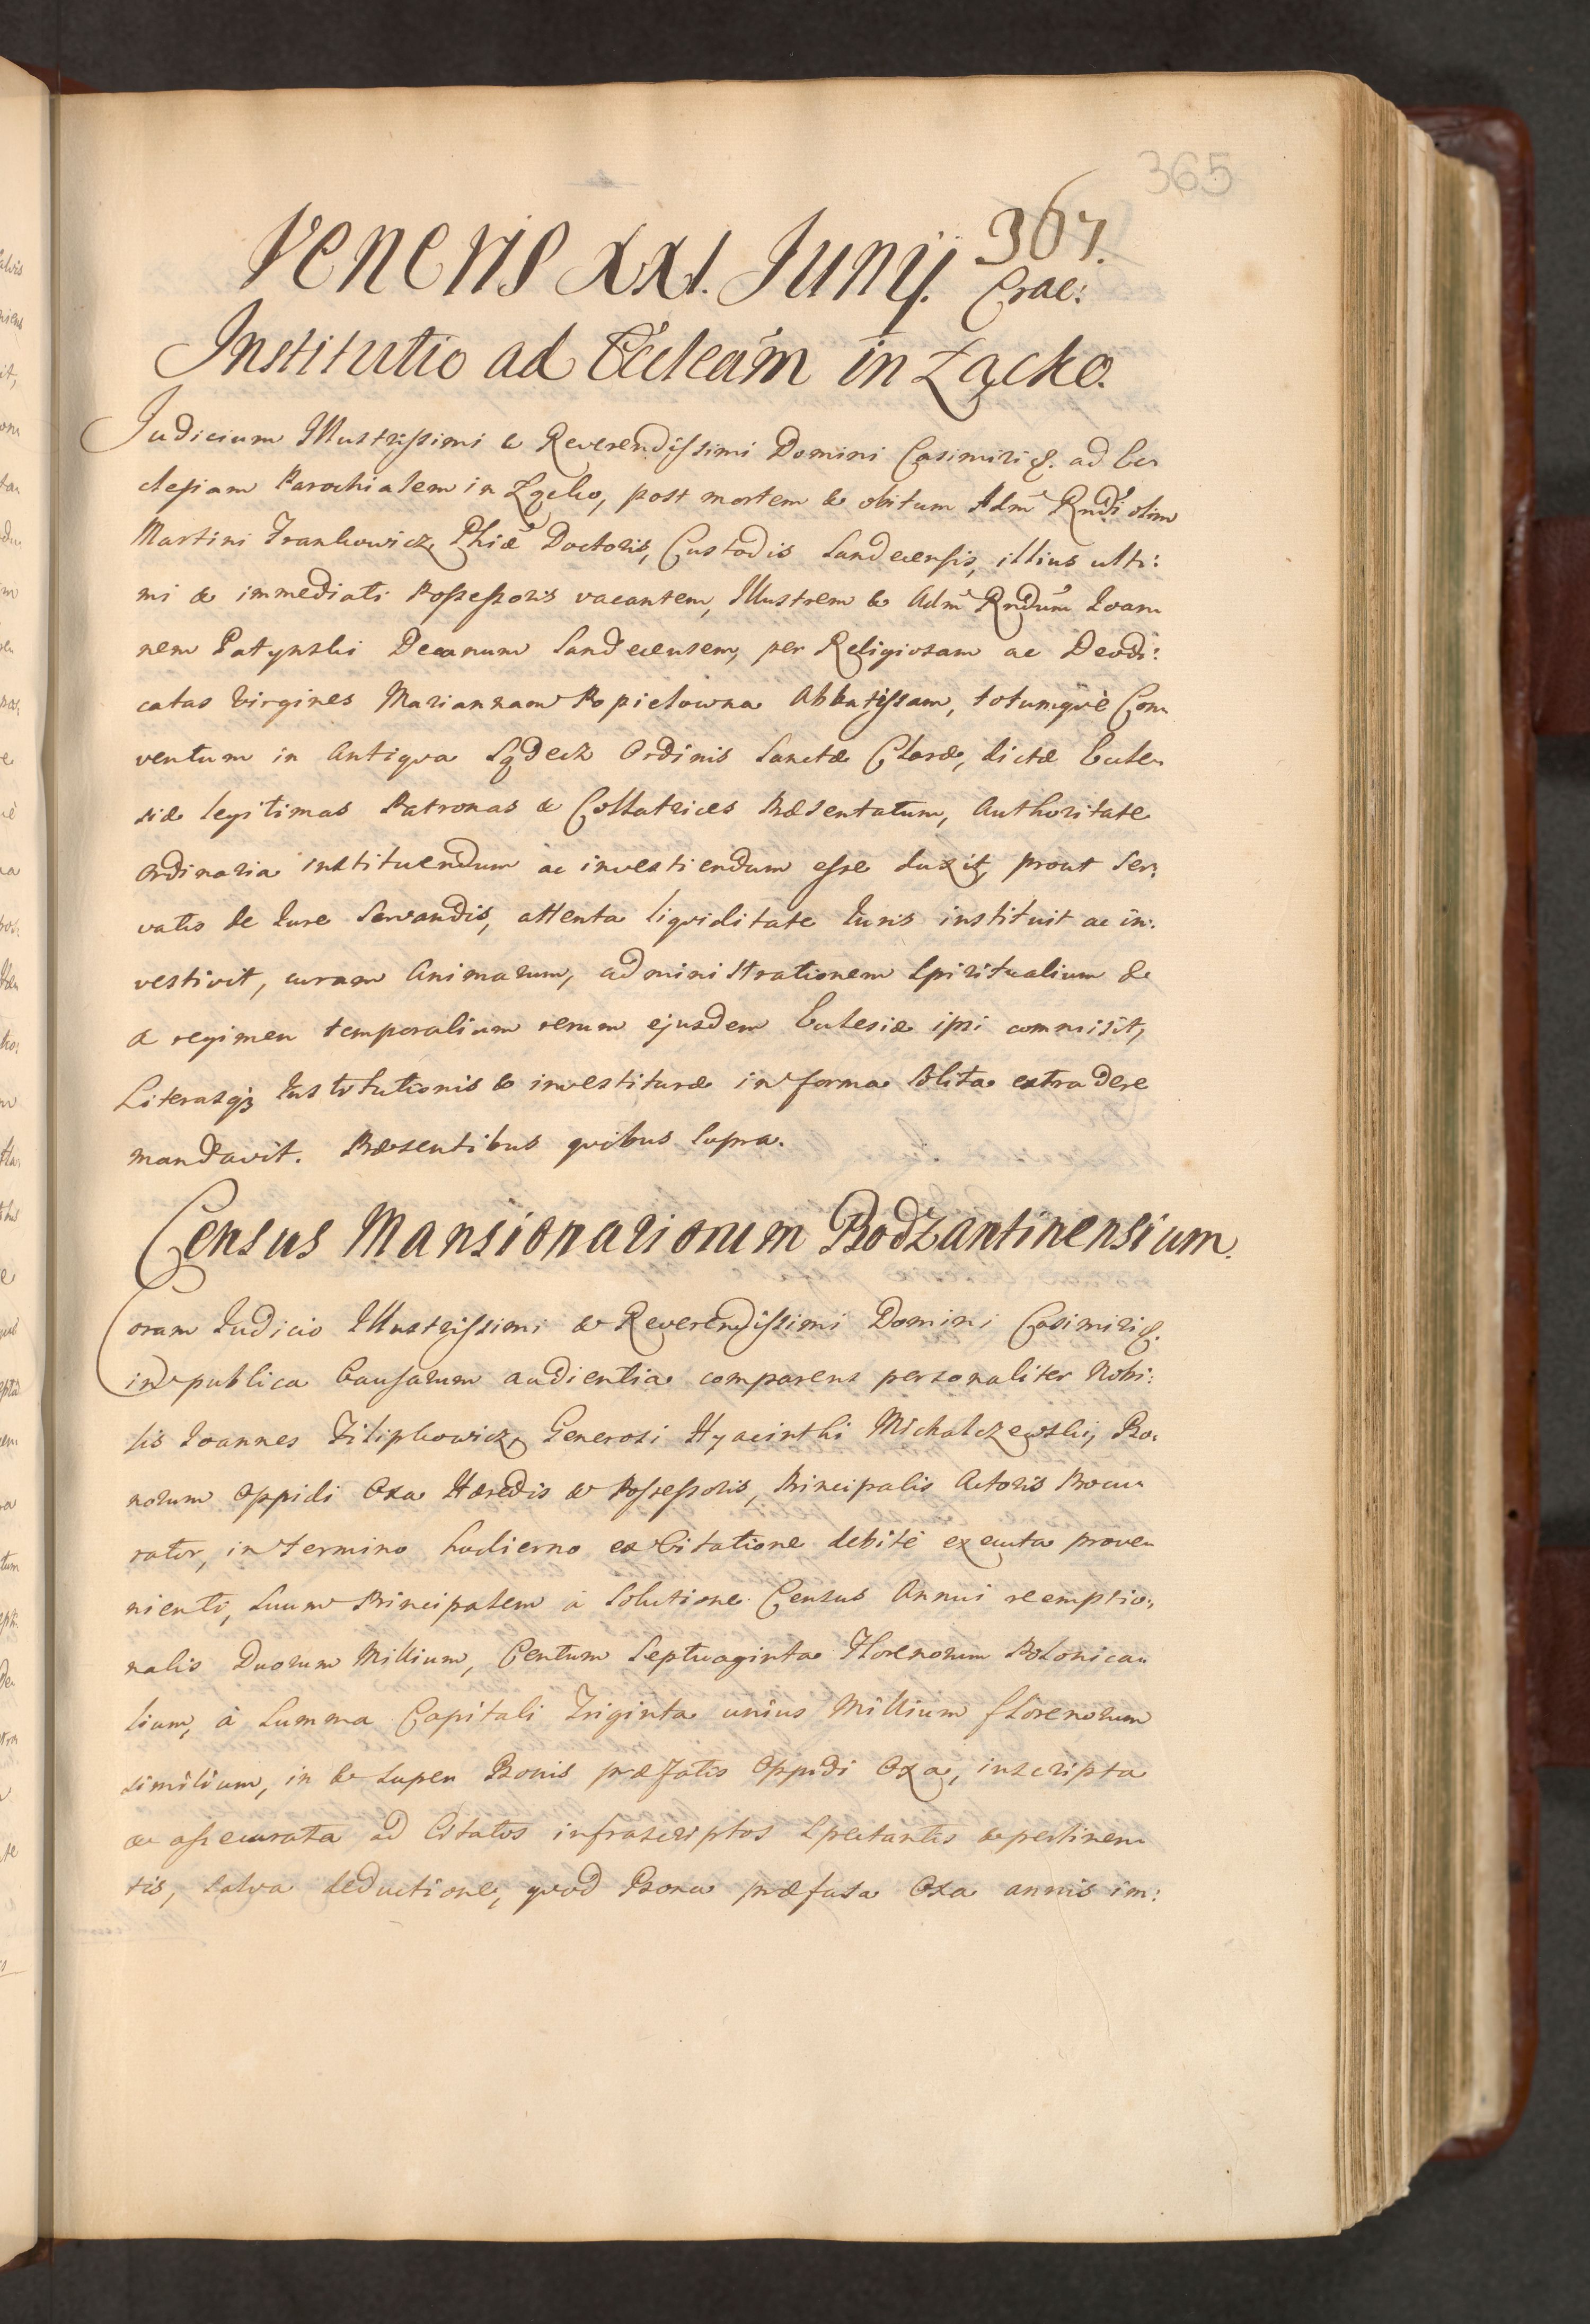 365
367.
Veneris XXI. Junij. Crac:
Institutio ad Eccleam in Łącko.
Judicium Illustrissimi & Reverendissimi Domini Casimiri &. ad Ec
clesiam Parochialem in Łącko, post mortem & obitum Adm Rndi olim
Martini Frankowicz, Phiæ Doctoris, Custodis Sandecensis, illius ulti:
mi & immediati Possessoris vacantem, Illustrem & Adm Rndum Ioan
nem Patynski Decanum Sandecensem, per Religiosam ac Deodi:
catas Virgines Mariannam Popielowna Abbatissam, totumque Con
ventum in Antiqua Sądecz Ordinis Sanctæ Claræ, dictæ Eccle
siæ legitimas Patronas & Collatrices Præsentatum, Authoritate
Ordinaria instituendum ac investiendum esse duxit, prout ser:
vatis de Iure Servandis, attenta liquiditate Iuris instituit ac in:
vestivit, curam Animarum, administrationem Spiritualium &
& regimen temporalium rerum ejusdem Ecclesiæ ipsi commisit,
Literasq; Institutionis & investituræ in forma solita extradere
mandavit. Præsentibus quibus supra.
Census Mansionariorum Bodzantinensium.
Coram Iudicio Illustrissimi & Reverendissimi Domini Casimiri &.
in publica Causarum audientia comparens personaliter Nobi:
lis Ioannes Filipkowicz, Generosi Hyacinthi Michalczewski, Bo:
norum Oppidi Oxa Hæredis & Possessoris, Principalis Actoris Procu
rator, in termino hodierno ex Citatione debitè executa prove
nienti, suum Principalem à Solutione Census Annui reemptio:
nalis Duorum Millium, Centum Septuaginta Florenorum Polonica
lium, à Summa Capitali Triginta unius Millium florenorum
similium, in & super Bonis præfatis Oppidi Oxa, inscripta
& assecurata ad Citatos infrascriptos Spectantis & pertinen
tis, salva deductione, quod Bona præfata Oxa annis im: